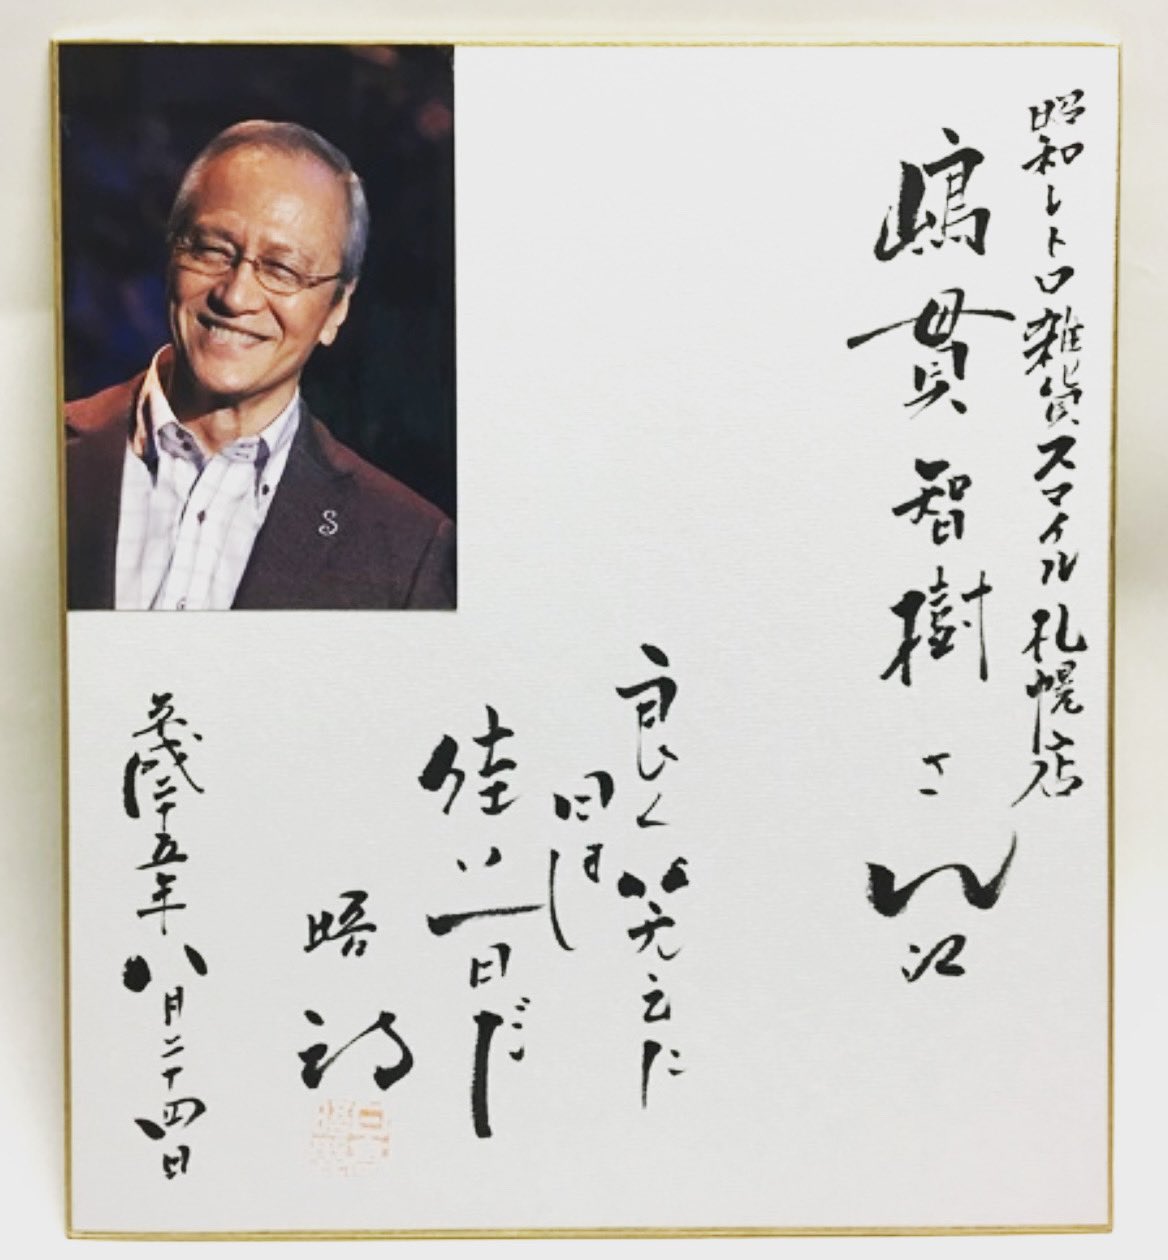 昭和レトロ雑貨スマイル札幌店
嶋貫智樹さん江
良く笑えた
日は
佳い一日だ
平成二十五年八月二十四日
S